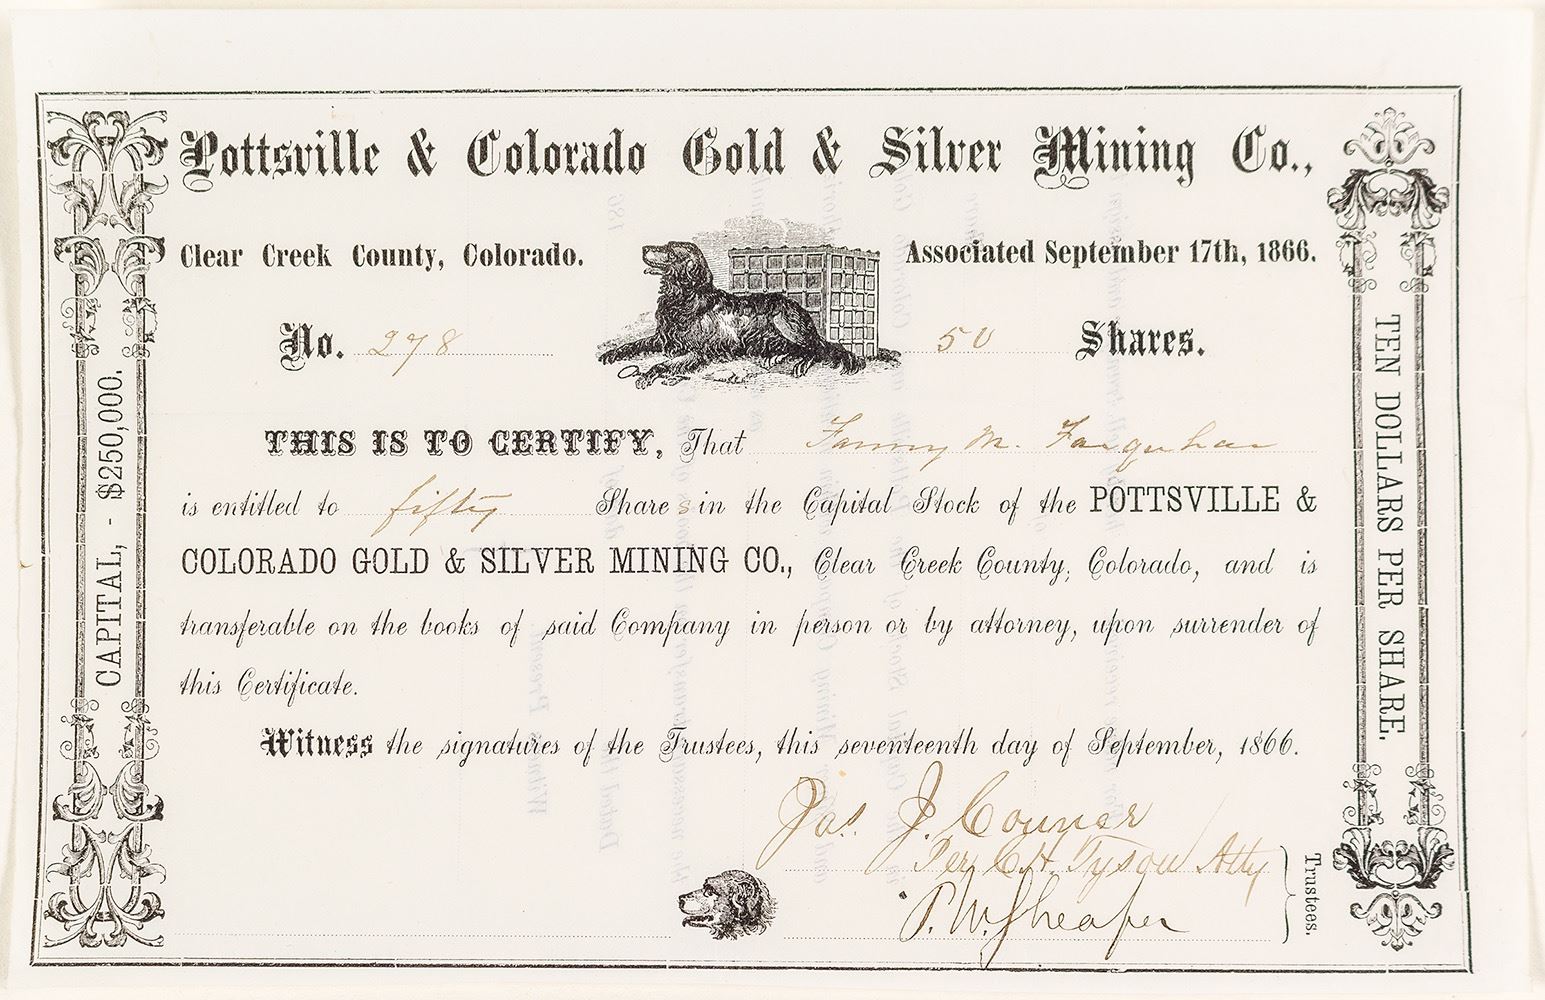 Pottsville & Colorado Gold & Silver Mining Co.,
Clear Creek County, Colorado.
Associated September 17th, 1866.
No. 278
50 Shares.
THIS IS TO CERTIFY, That Fanny M. Farquhar
is entitled to fifty Shares in the Capital Stock of the POTTSVILLE &
COLORADO GOLD & SILVER MINING CO., Clear Creek County, Colorado, and is
transferable on the books of said Company in person or by attorney, upon surrender of
this Certificate.
Witness the signatures of the Trustees, this seventeenth day of September, 1866.
Jas. J. Conner
Per C.H. Tyson Atty
P. W. Sheafer
Trustees.
CAPITAL, - $250,000.
TEN DOLLARS PER SHARE.